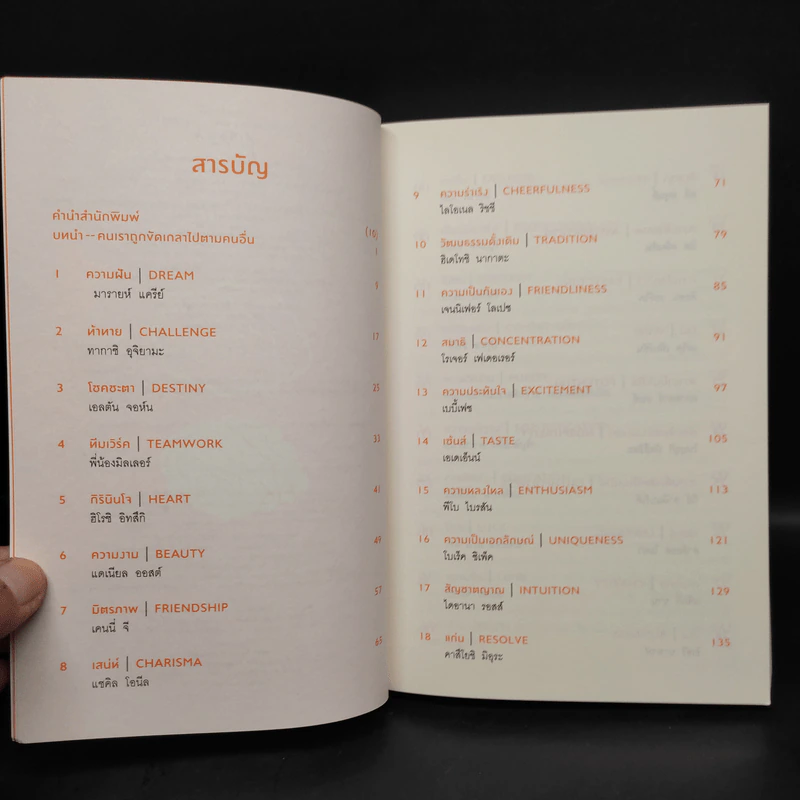 สารบัญ
คำนำสำนักพิมพ์ (10)
บทนำ -- คนเราถูกขัดเกลาไปตามคนอื่น 1
1 ความฝัน | DREAM 9
มารายห์ แครีย์
2 ท้าทาย | CHALLENGE 17
ทากาชิ อุจิยามะ
3 โชคชะตา | DESTINY 25
เอลตัน จอห์น
4 ทีมเวิร์ค | TEAMWORK 33
พี่น้องมิลเลอร์
5 กิรินินโจ | HEART 41
ฮิโรชิ อิทสึกิ
6 ความงาม | BEAUTY 49
แดเนียล ออสต์
7 มิตรภาพ | FRIENDSHIP 57
เคนนี่ จี
8 เสน่ห์ | CHARISMA 65
แชคิล โอนีล
9 ความร่าเริง | CHEERFULNESS 71
ไลโอเนล ริชชี่
10 วัฒนธรรมดั้งเดิม | TRADITION 79
ฮิเดโทชิ นากาตะ
11 ความเป็นกันเอง | FRIENDLINESS 85
เจนนิเฟอร์ โลเปซ
12 สมาธิ | CONCENTRATION 91
โรเจอร์ เฟเดอเรอร์
13 ความประทับใจ | EXCITEMENT 97
เบบี้เฟซ
14 เซ้นส์ | TASTE 105
เอเดเอ็นน์
15 ความหลงใหล | ENTHUSIASM 113
พีโบ ไบรสัน
16 ความเป็นเอกลักษณ์ | UNIQUENESS 121
โบเร็ค ซิเพ็ค
17 สัญชาตญาณ | INTUITION 129
ไดอานา รอสส์
18 แก่น | RESOLVE 135
คาสึโยชิ มิอุระ